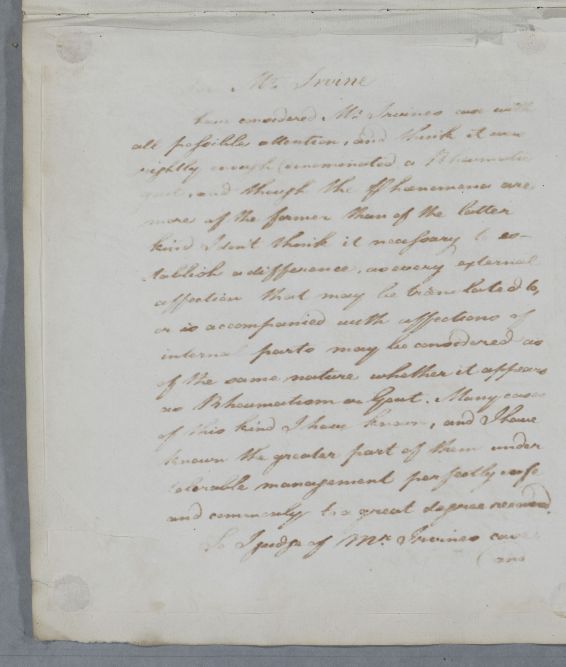 For Mr. Irvine
I have considered Mr. Irvines case with
all possible attention, and think it was
rightly enough denominated a Rheumatic
gout, and though the Phænomena are
more of the former than of the latter
kind I don't think it necessary to es-
tablish a difference, as every external
affection that may be translated to,
or is accompanied with affections of
internal parts may be considered as
of the same nature whether it appears
as Rheumatism or Gout. Many cases
of this kind I have known, and I have
known the greater part of them under
tolerable management perfectly safe
and commonly to a great degree removed.
So I judge of Mr. Irvines case
(and